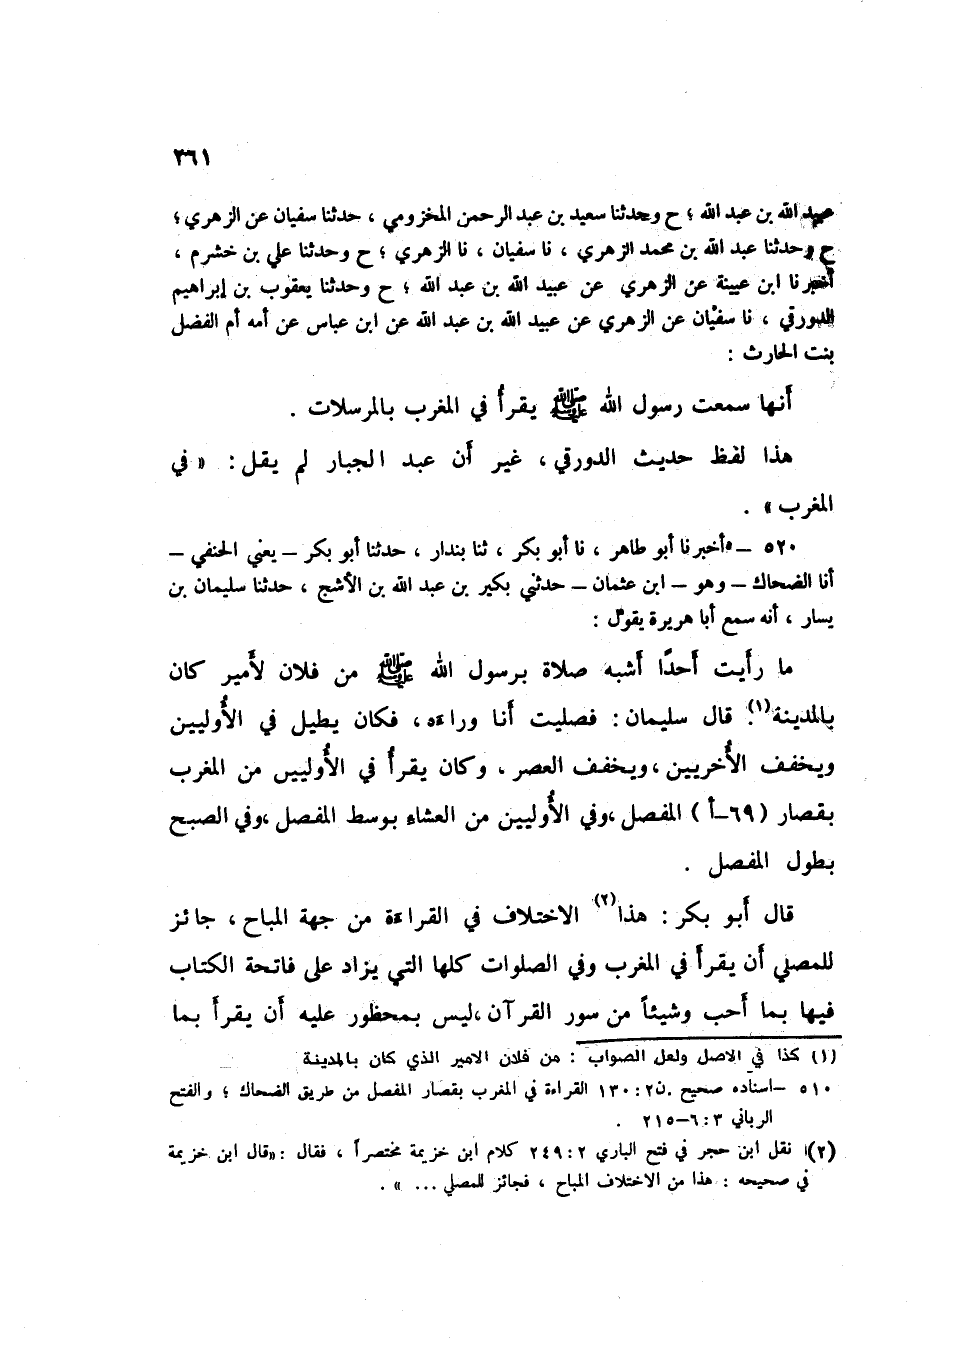 ٣٦١
عبيد الله بن عبد الله ؛ ح وحدثنا سعيد بن عبد الرحمن المخزومي ، حدثنا سفيان عن الزهري ؛
ح وحدثنا عبد الله بن محمد الزهري ، نا سفيان ، نا الزهري ؛ ح وحدثنا علي بن خشرم ،
أخبرنا ابن عيينة عن الزهري عن عبيد الله بن عبد الله ؛ ح وحدثنا يعقوب بن إبراهيم
الدورقي ، نا سفيان عن الزهري عن عبيد الله بن عبد الله عن ابن عباس عن أمه أم الفضل
بنت الحارث :
أنها سمعت رسول الله ﷺ يقرأ في المغرب بالمرسلات .
هذا لفظ حديث الدورقي ، غير أن عبد الجبار لم يقل : « في
المغرب » .
٥٢٠ – أخبرنا أبو طاهر ، نا أبو بكر ، ثنا بندار ، حدثنا أبو بكر – يعني الحنفي –
أنا الضحاك – وهو – ابن عثمان – حدثني بكير بن عبد الله بن الأشج ، حدثنا سليمان بن
يسار ، أنه سمع أبا هريرة يقول :
ما رأيت أحدًا أشبه صلاة برسول الله ﷺ من فلان لأمير كان
بالمدينة(١). قال سليمان : فصليت أنا وراءه ، فكان يطيل في الأُوليين
ويخفف الأُخريين ، ويخفف العصر ، وكان يقرأُ في الأُوليين من المغرب
بقصار (٦٩–أ) المفصل ، وفي الأُوليين من العشاء بوسط المفصل ، وفي الصبح
بطول المفصل .
قال أبو بكر : هذا(٢) الاختلاف في القراءة من جهة المباح ، جائز
للمصلي أن يقرأ في المغرب وفي الصلوات كلها التي يزاد على فاتحة الكتاب
فيها بما أحب وشيئاً من سور القرآن ، ليس بمحظور عليه أن يقرأ بما
(١) كذا في الاصل ولعل الصواب : من فلان الامير الذي كان بالمدينة
٥١٠ – اسناده صحيح . ن ٢ : ١٣٠ القراءة في المغرب بقصار المفصل من طريق الضحاك ؛ والفتح
الرباني ٣ : ٦–٢١٥ .
(٢) نقل ابن حجر في فتح الباري ٢ : ٢٤٩ كلام ابن خزيمة مختصراً ، فقال : «قال ابن خزيمة
في صحيحه : هذا من الاختلاف المباح ، فجائز للمصلي ... » .